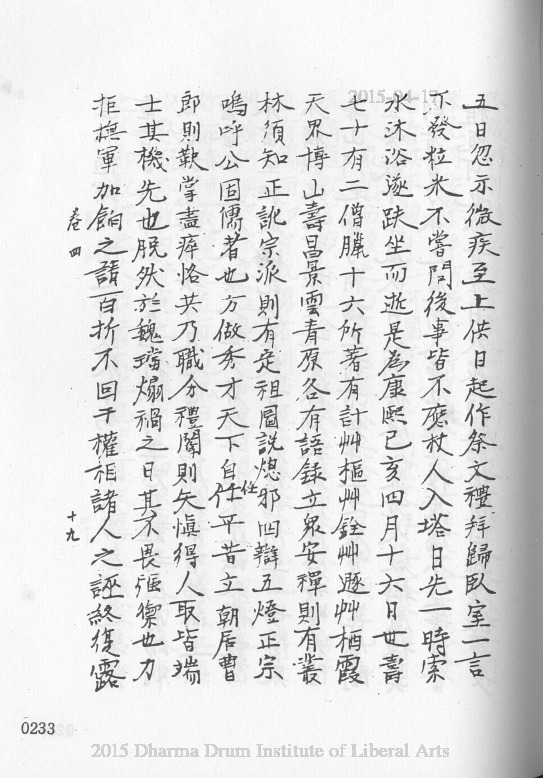 五日忽示微疾至上供日起作祭文禮拜歸臥室一言
不發粒米不嘗問後事皆不應杖人入塔日先一時索
水沐浴遂趺坐而逝是為康熙己亥四月十六日世壽
七十有二僧臘十六所著有計艸樞艸銓艸豚艸栖霞
天界博山壽昌景雲青原各有語錄立眾安禪則有叢
林須知正訛宗派則有定祖圖說熄邪四辯五燈正宗
嗚呼公固儒者也方做秀才天下自任任平昔立朝居曹
郎則歎掌盡瘁恪共乃職分禮闈則矢慎得人取皆端
士其機先也脫然於魏璫煽禍之日其不畏彊禦也力
拒撫軍加餉之請百折不回干權相諸人之誣終復露
卷四
十九
0233
2015-04-17
2015 Dharma Drum Institute of Liberal Arts